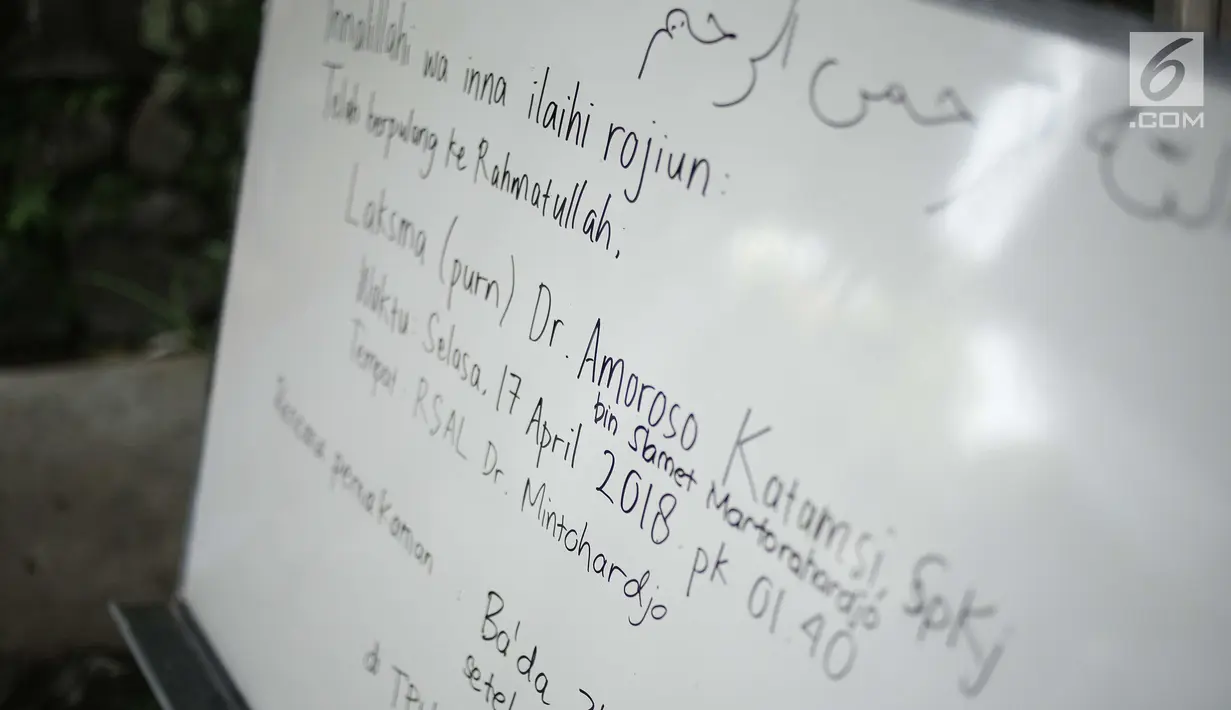 الرحمن الرحيم
6
.COM
Innalillahi wa inna ilaihi rojiun:
Telah berpulang ke Rahmatullah,
Laksma (purn) Dr. Amoroso Katamsi, SpKj
bin Slamet Martorahardjo
Waktu: Selasa, 17 April 2018 pk 01.40
Tempat: RSAL Dr. Mintohardjo
Rencana pemakaman
Ba'da
setel
di TPU